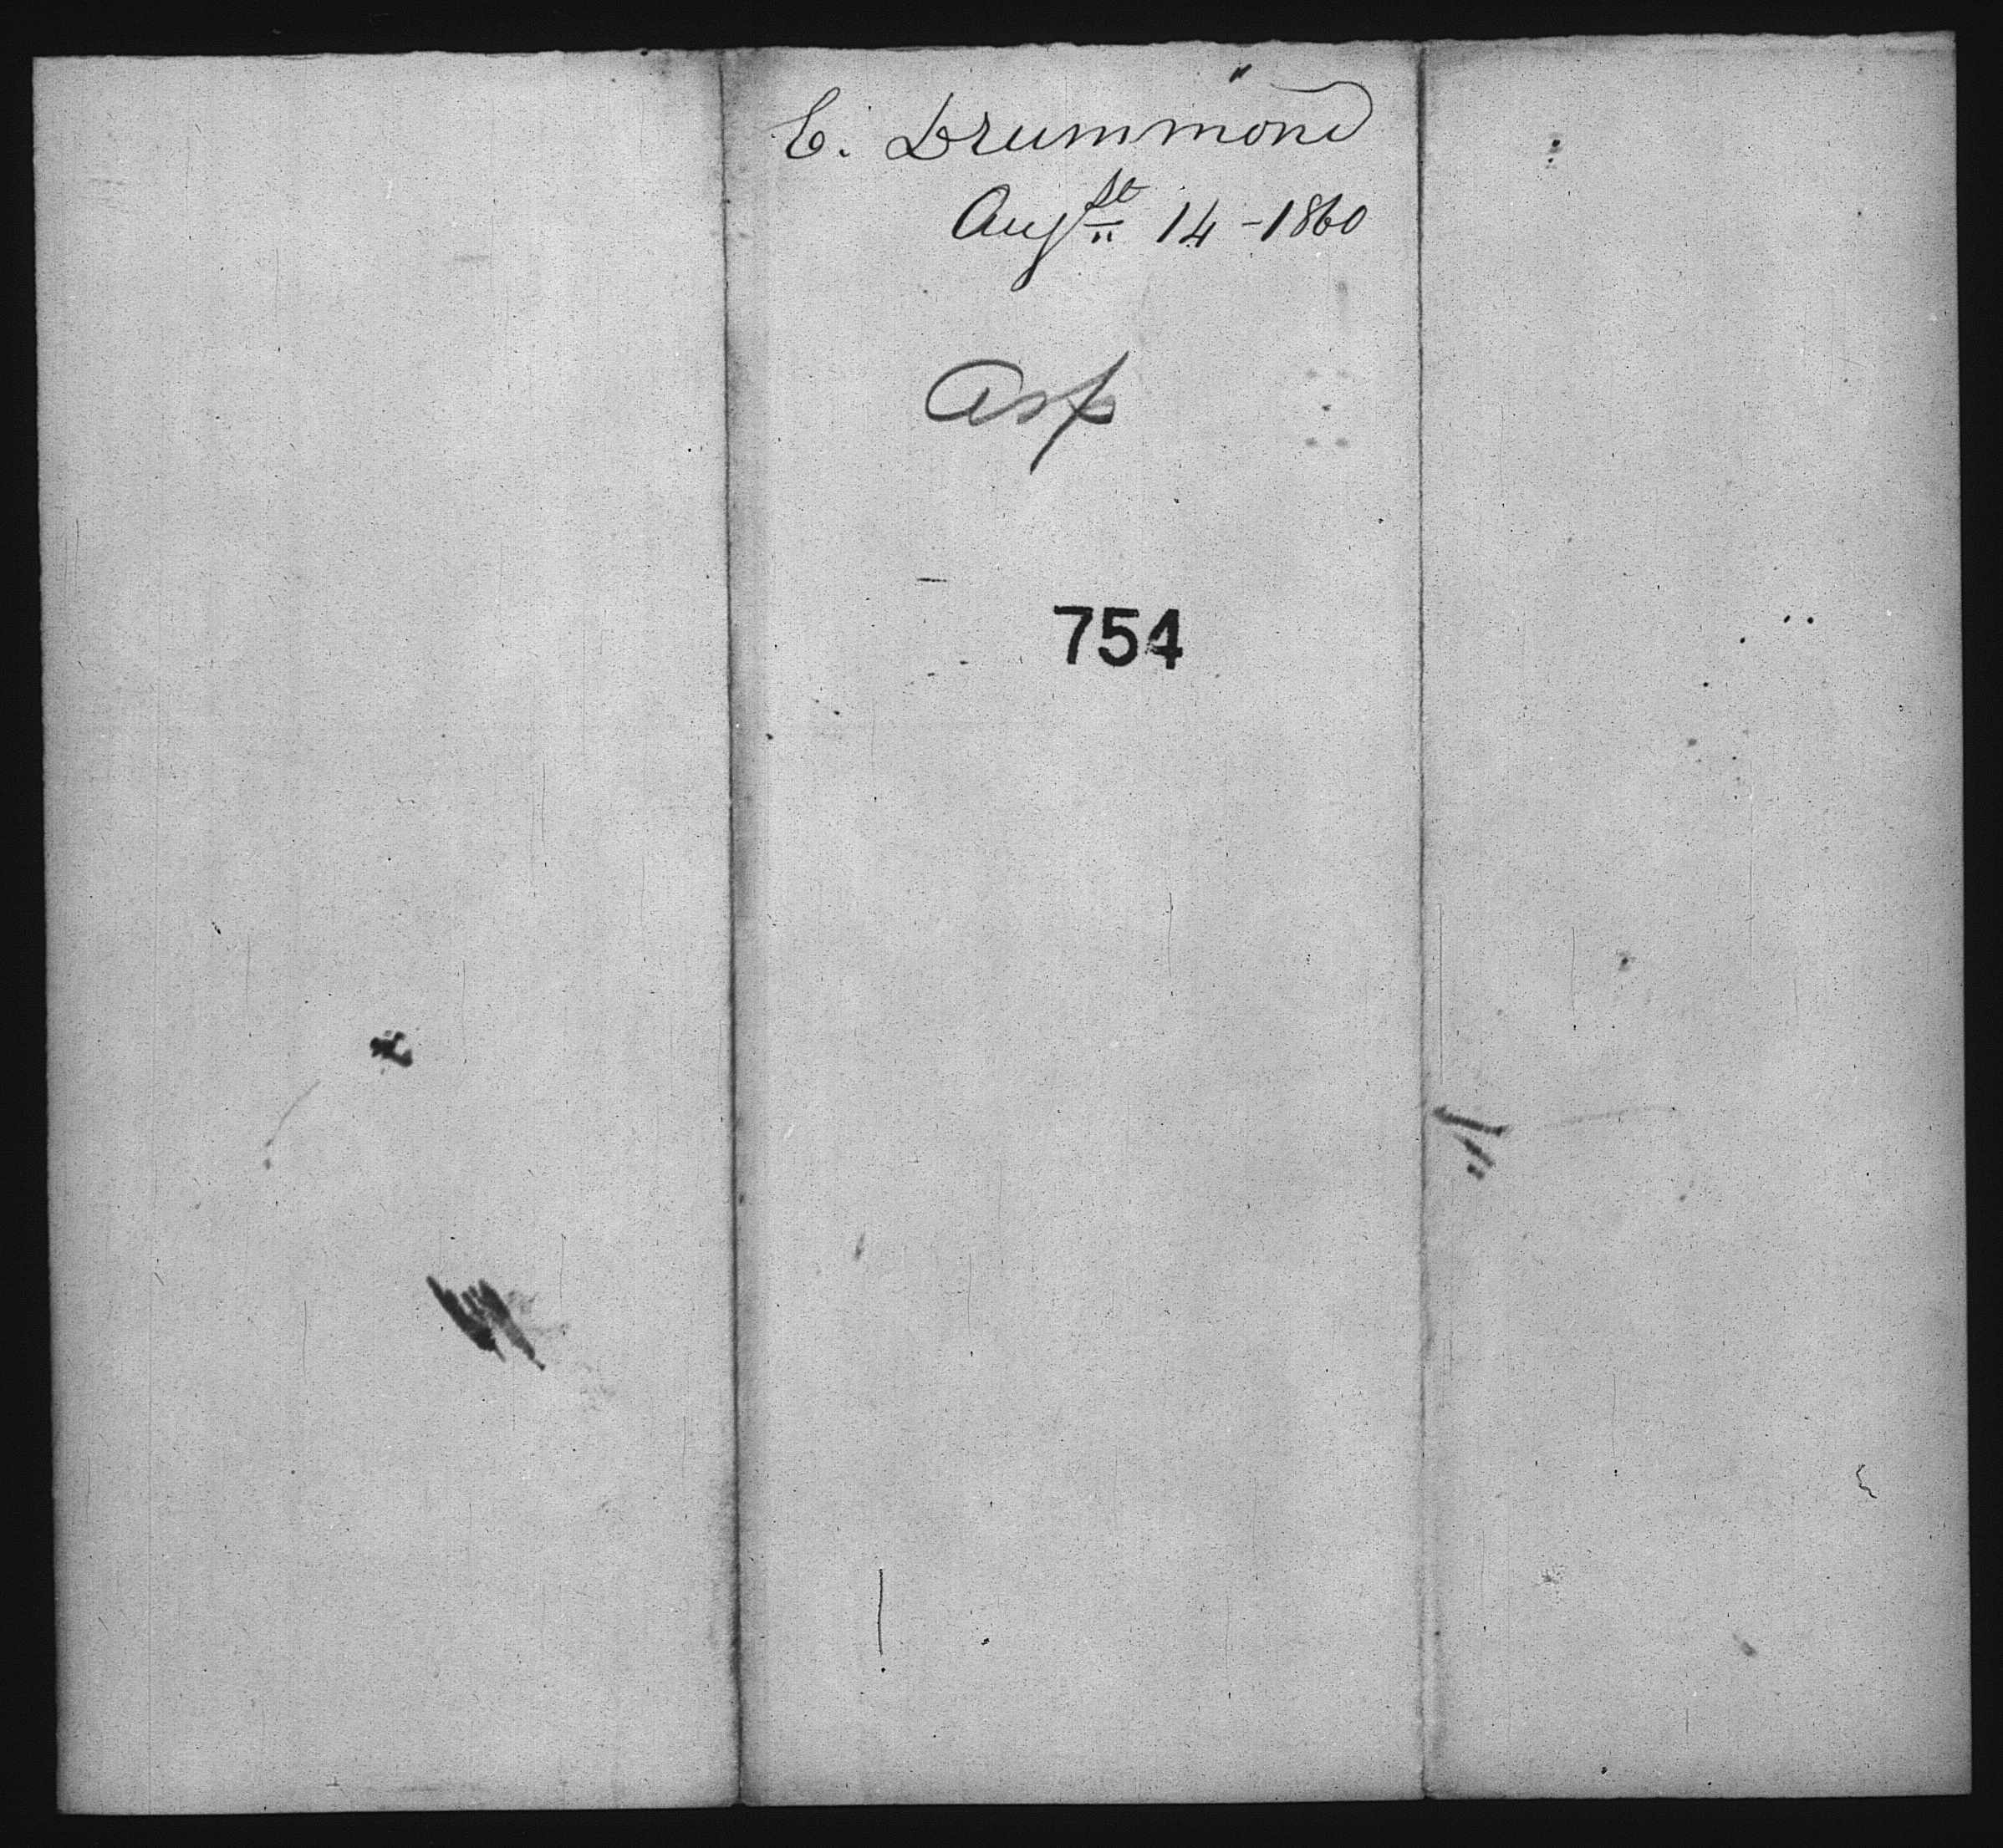 E. Drummond
Augst 14 - 1860
Asf
754